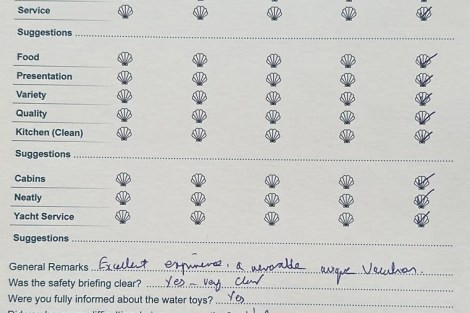 Service
Suggestions
Food
Presentation
Variety
Quality
Kitchen (Clean)
Suggestions
Cabins
Neatly
Yacht Service
Suggestions
General Remarks Excellent experience, a vacation.
Was the safety briefing clear? Yes - very clear
Were you fully informed about the water toys? Yes